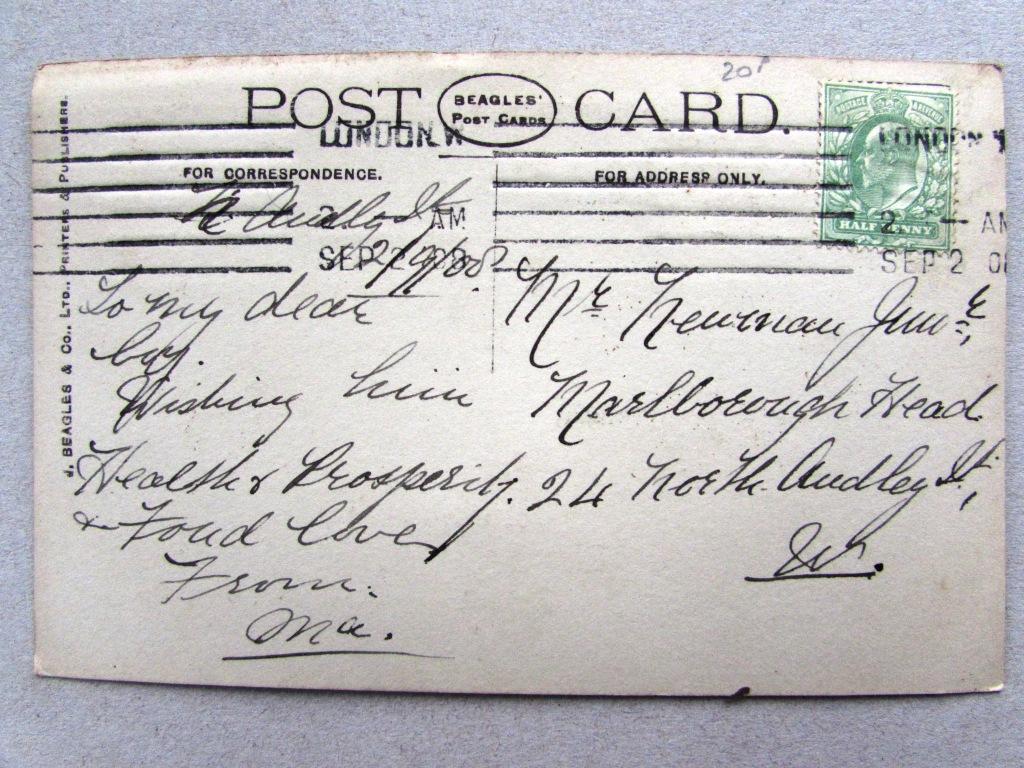 20p
POST CARD.
BEAGLES'
POST CARDS
POSTAGE REVENUE
HALFPENNY
LONDON. W
LONDON. W
AM
SEP 2
2 AM
SEP 2 08
FOR CORRESPONDENCE.
FOR ADDRESS ONLY.
J. BEAGLES & Co., LTD., PRINTERS & PUBLISHERS.
N Audley St
2/9/08
To my dear
boy.
Wishing him
Health & Prosperity.
& Fond Love
From.
Ma.
Mr Newman Junr,
Marlborough Head
24 North Audley St,
W.